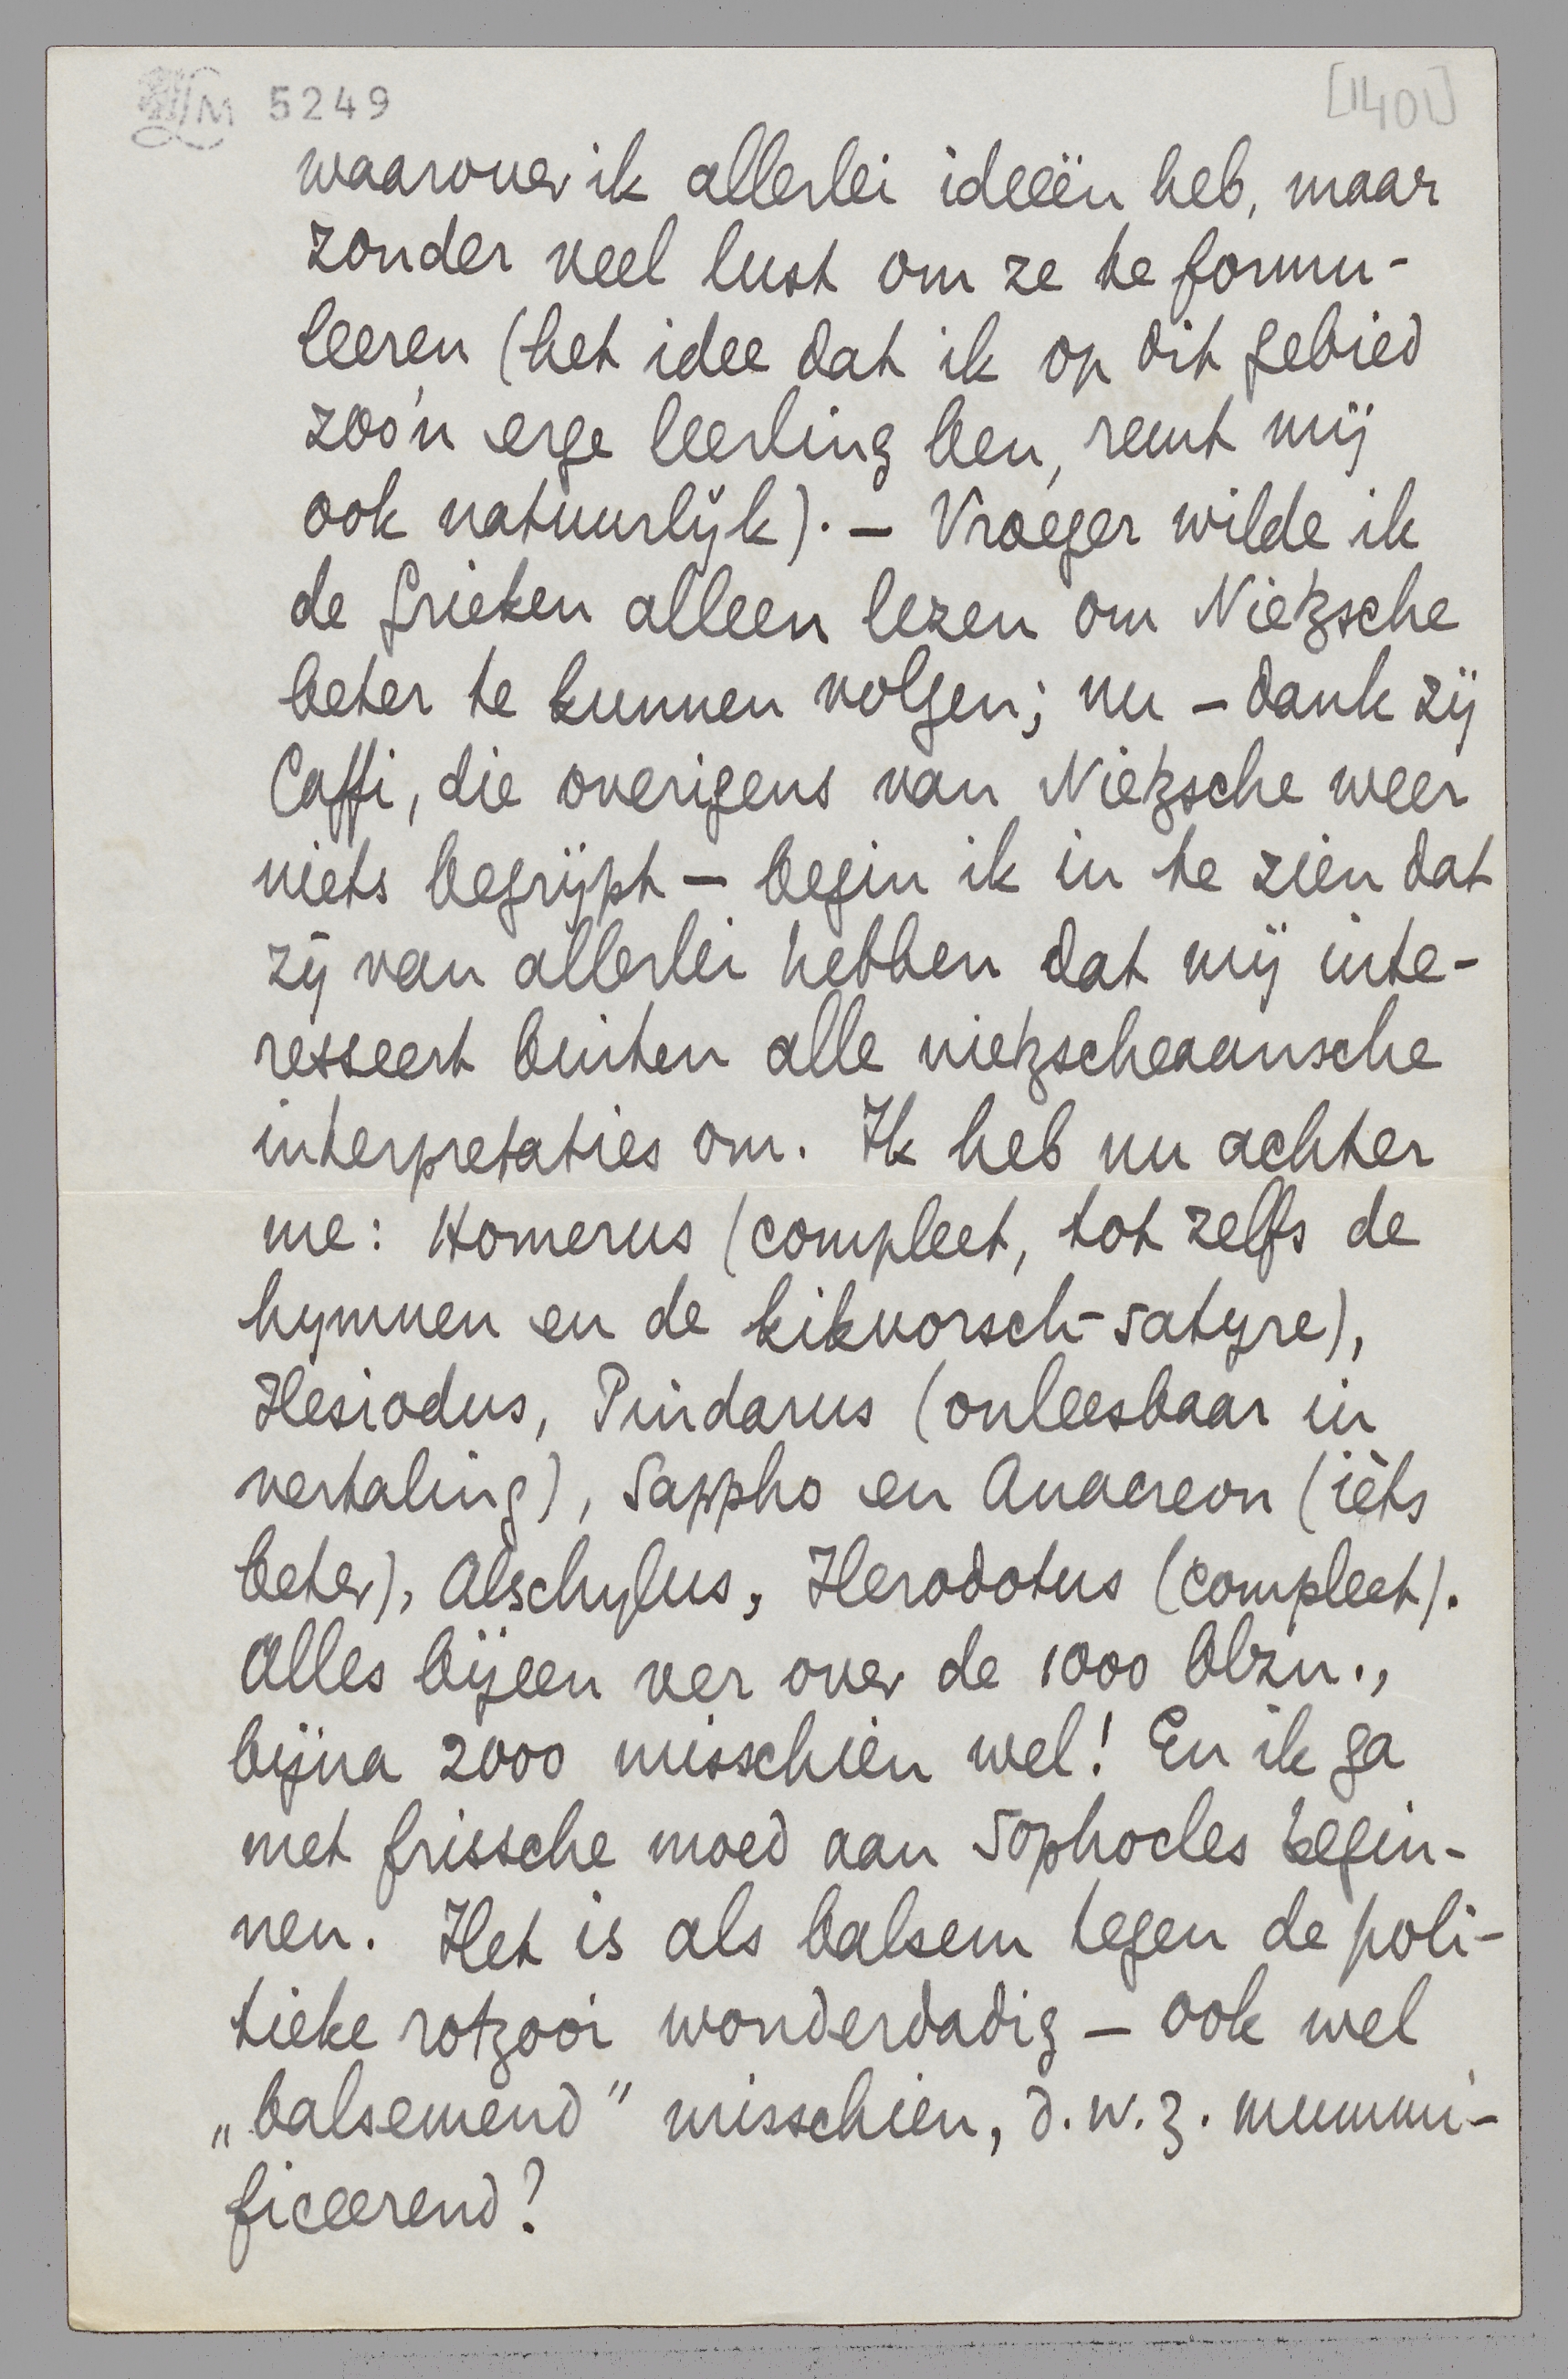 5249
[1401]
waarover ik allerlei ideeën heb, maar
zonder veel lust om ze te formu-
leeren (het idee dat ik op dit gebied
zoo'n erge leerling ben, remt mij
ook natuurlijk). – Vroeger wilde ik
de Grieken alleen lezen om Nietzsche
beter te kunnen volgen; nu – dank zij
Caffi, die overigens van Nietzsche weer
niets begrijpt – begin ik in te zien dat
zij van allerlei hebben dat mij inte-
resseert buiten alle nietzscheaansche
interpretaties om. Ik heb nu achter
me: Homerus (compleet, tot zelfs de
hymnen en de kikvorsch-satyre),
Hesiodus, Pindarus (onleesbaar in
vertaling), Sappho en Anacreon (ièts
beter), Aeschylus, Herodotus (compleet).
Alles bijeen ver over de 1000 blzn.,
bijna 2000 misschien wel! En ik ga
met frissche moed aan Sophocles begin-
nen. Het is als balsem tegen de poli-
tieke rotzooi wonderdadig – ook wel
„balsemend" misschien, d.w.z. mummi-
ficeerend?